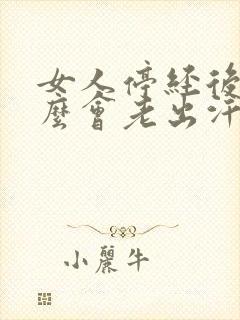 女人停經後
麼會老出汗
小麗牛